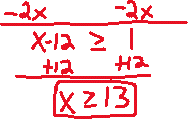 -2x -2x
x-12 ≥ 1
+12 +12
x ≥ 13